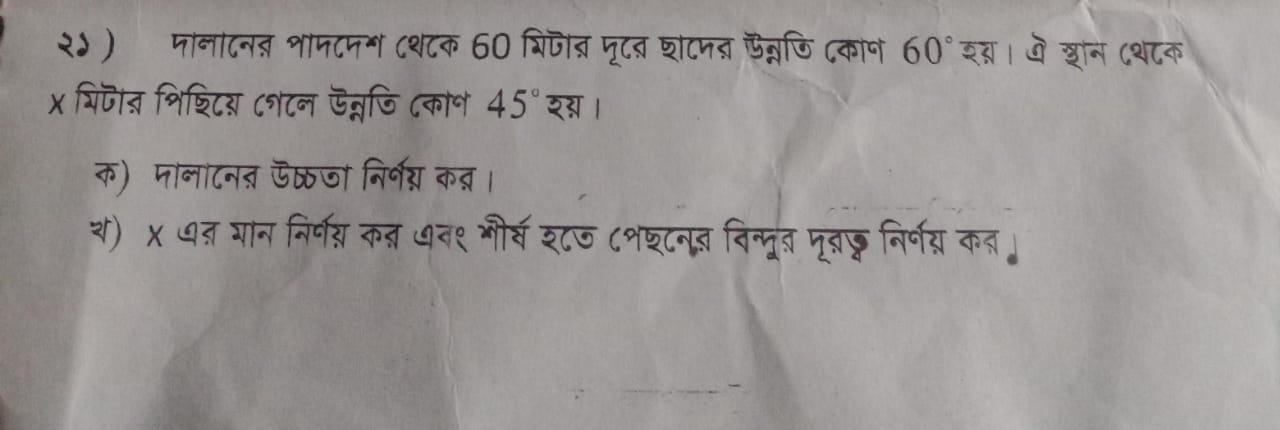 ২১) দালানের পাদদেশ থেকে 60 মিটার দূরে ছাদের উন্নতি কোণ 60° হয়। ঐ স্থান থেকে
x মিটার পিছিয়ে গেলে উন্নতি কোণ 45° হয়।
ক) দালানের উচ্চতা নির্ণয় কর।
খ) x এর মান নির্ণয় কর এবং শীর্ষ হতে পেছনের বিন্দুর দূরত্ব নির্ণয় কর।